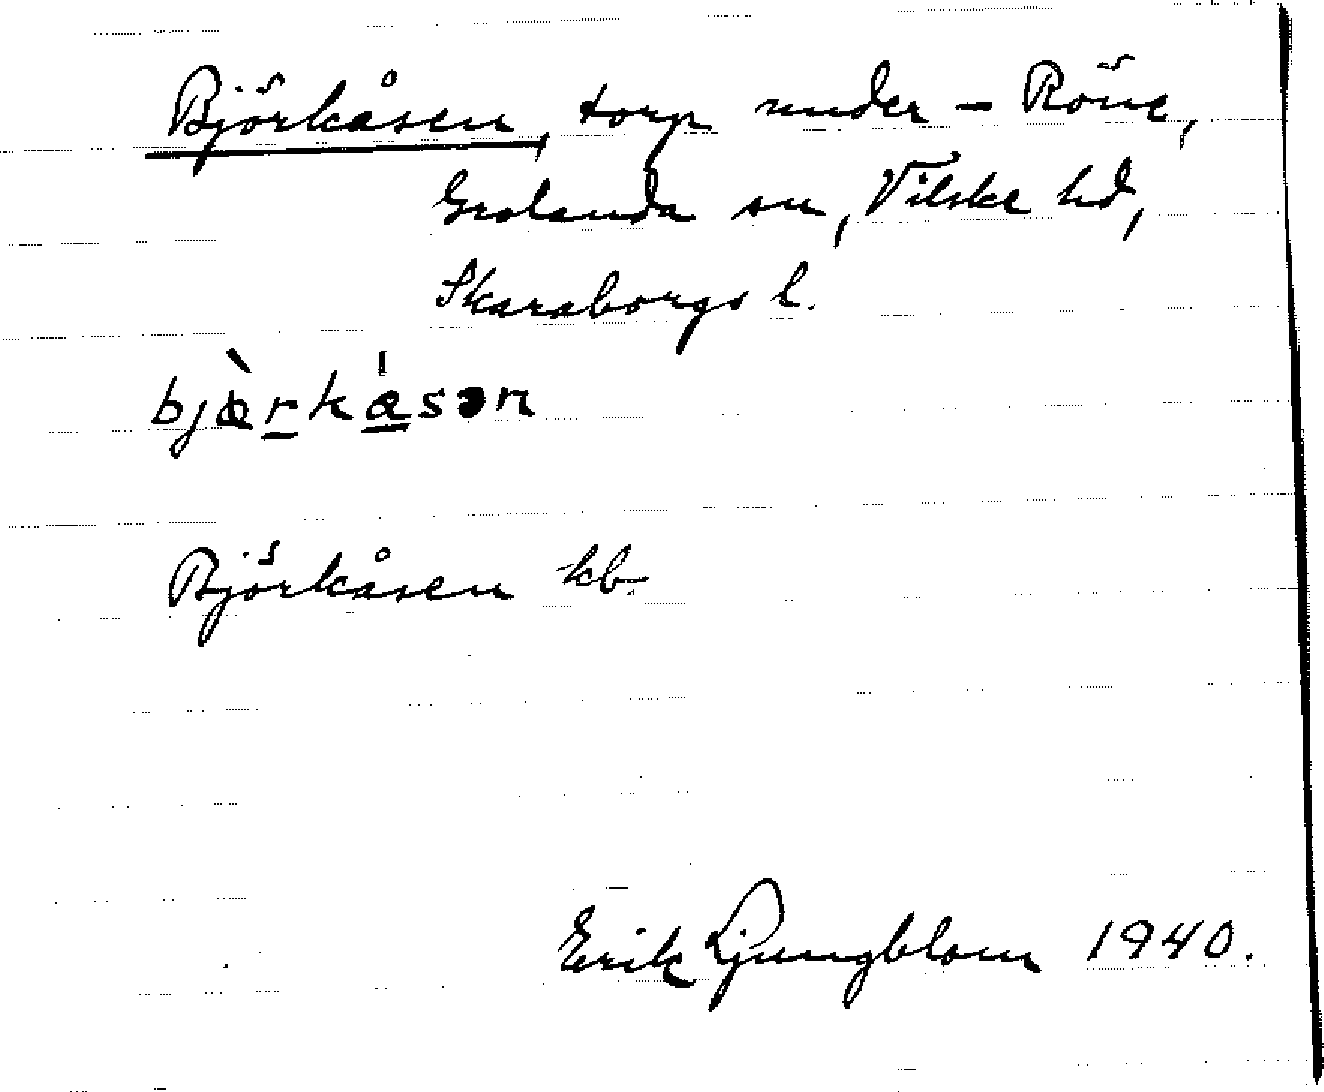 Björkåsen, torp under – Röne,
Grolanda sn, Vilske hd,
Skaraborgs l.
bjæ̀rkåsən
Björkåsen kb.
Erik Ljungblom 1940.